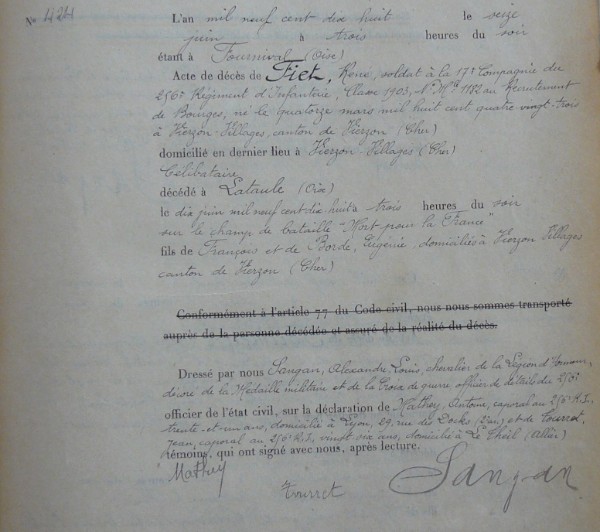 N° 424
L'an mil neuf cent dix huit le seize
juin à trois heures du soir
étant à Fournival (Oise)
Acte de décès de Fiet, René, soldat à la 17e Compagnie du
256e Régiment d'Infanterie, Classe 1903, N° Mle 1182 au Recrutement
de Bourges, né le quatorze mars mil huit cent quatre-vingt-trois
à Vierzon-Villages, canton de Vierzon (Cher)
domicilié en dernier lieu à Vierzon-Villages (Cher)
Célibataire
décédé à Lataule (Oise)
le dix juin mil neuf cent dix huit à trois heures du soir
sur le champ de bataille "Mort pour la France"
fils de François et de Borde, Eugénie, domiciliés à Vierzon Villages
canton de Vierzon (Cher)
Conformément à l'article 77 du Code civil, nous nous sommes transporté
auprès de la personne décédée et assuré de la réalité du décès.
Dressé par nous Sangan, Alexandre, Louis, chevalier de la Légion d'honneur,
décoré de la Médaille militaire et de la Croix de guerre officier de détails du 256e
officier de l'état civil, sur la déclaration de Mathey, Antoine, caporal au 256e R.I.
trente-et-un ans, domicilié à Lyon, 29, rue des Docks et de Tourret,
Jean, caporal au 256e R.I., vingt six ans, domicilié à Le Theil (Allier)
témoins, qui ont signé avec nous, après lecture.
Mathey
Tourret
Sangan